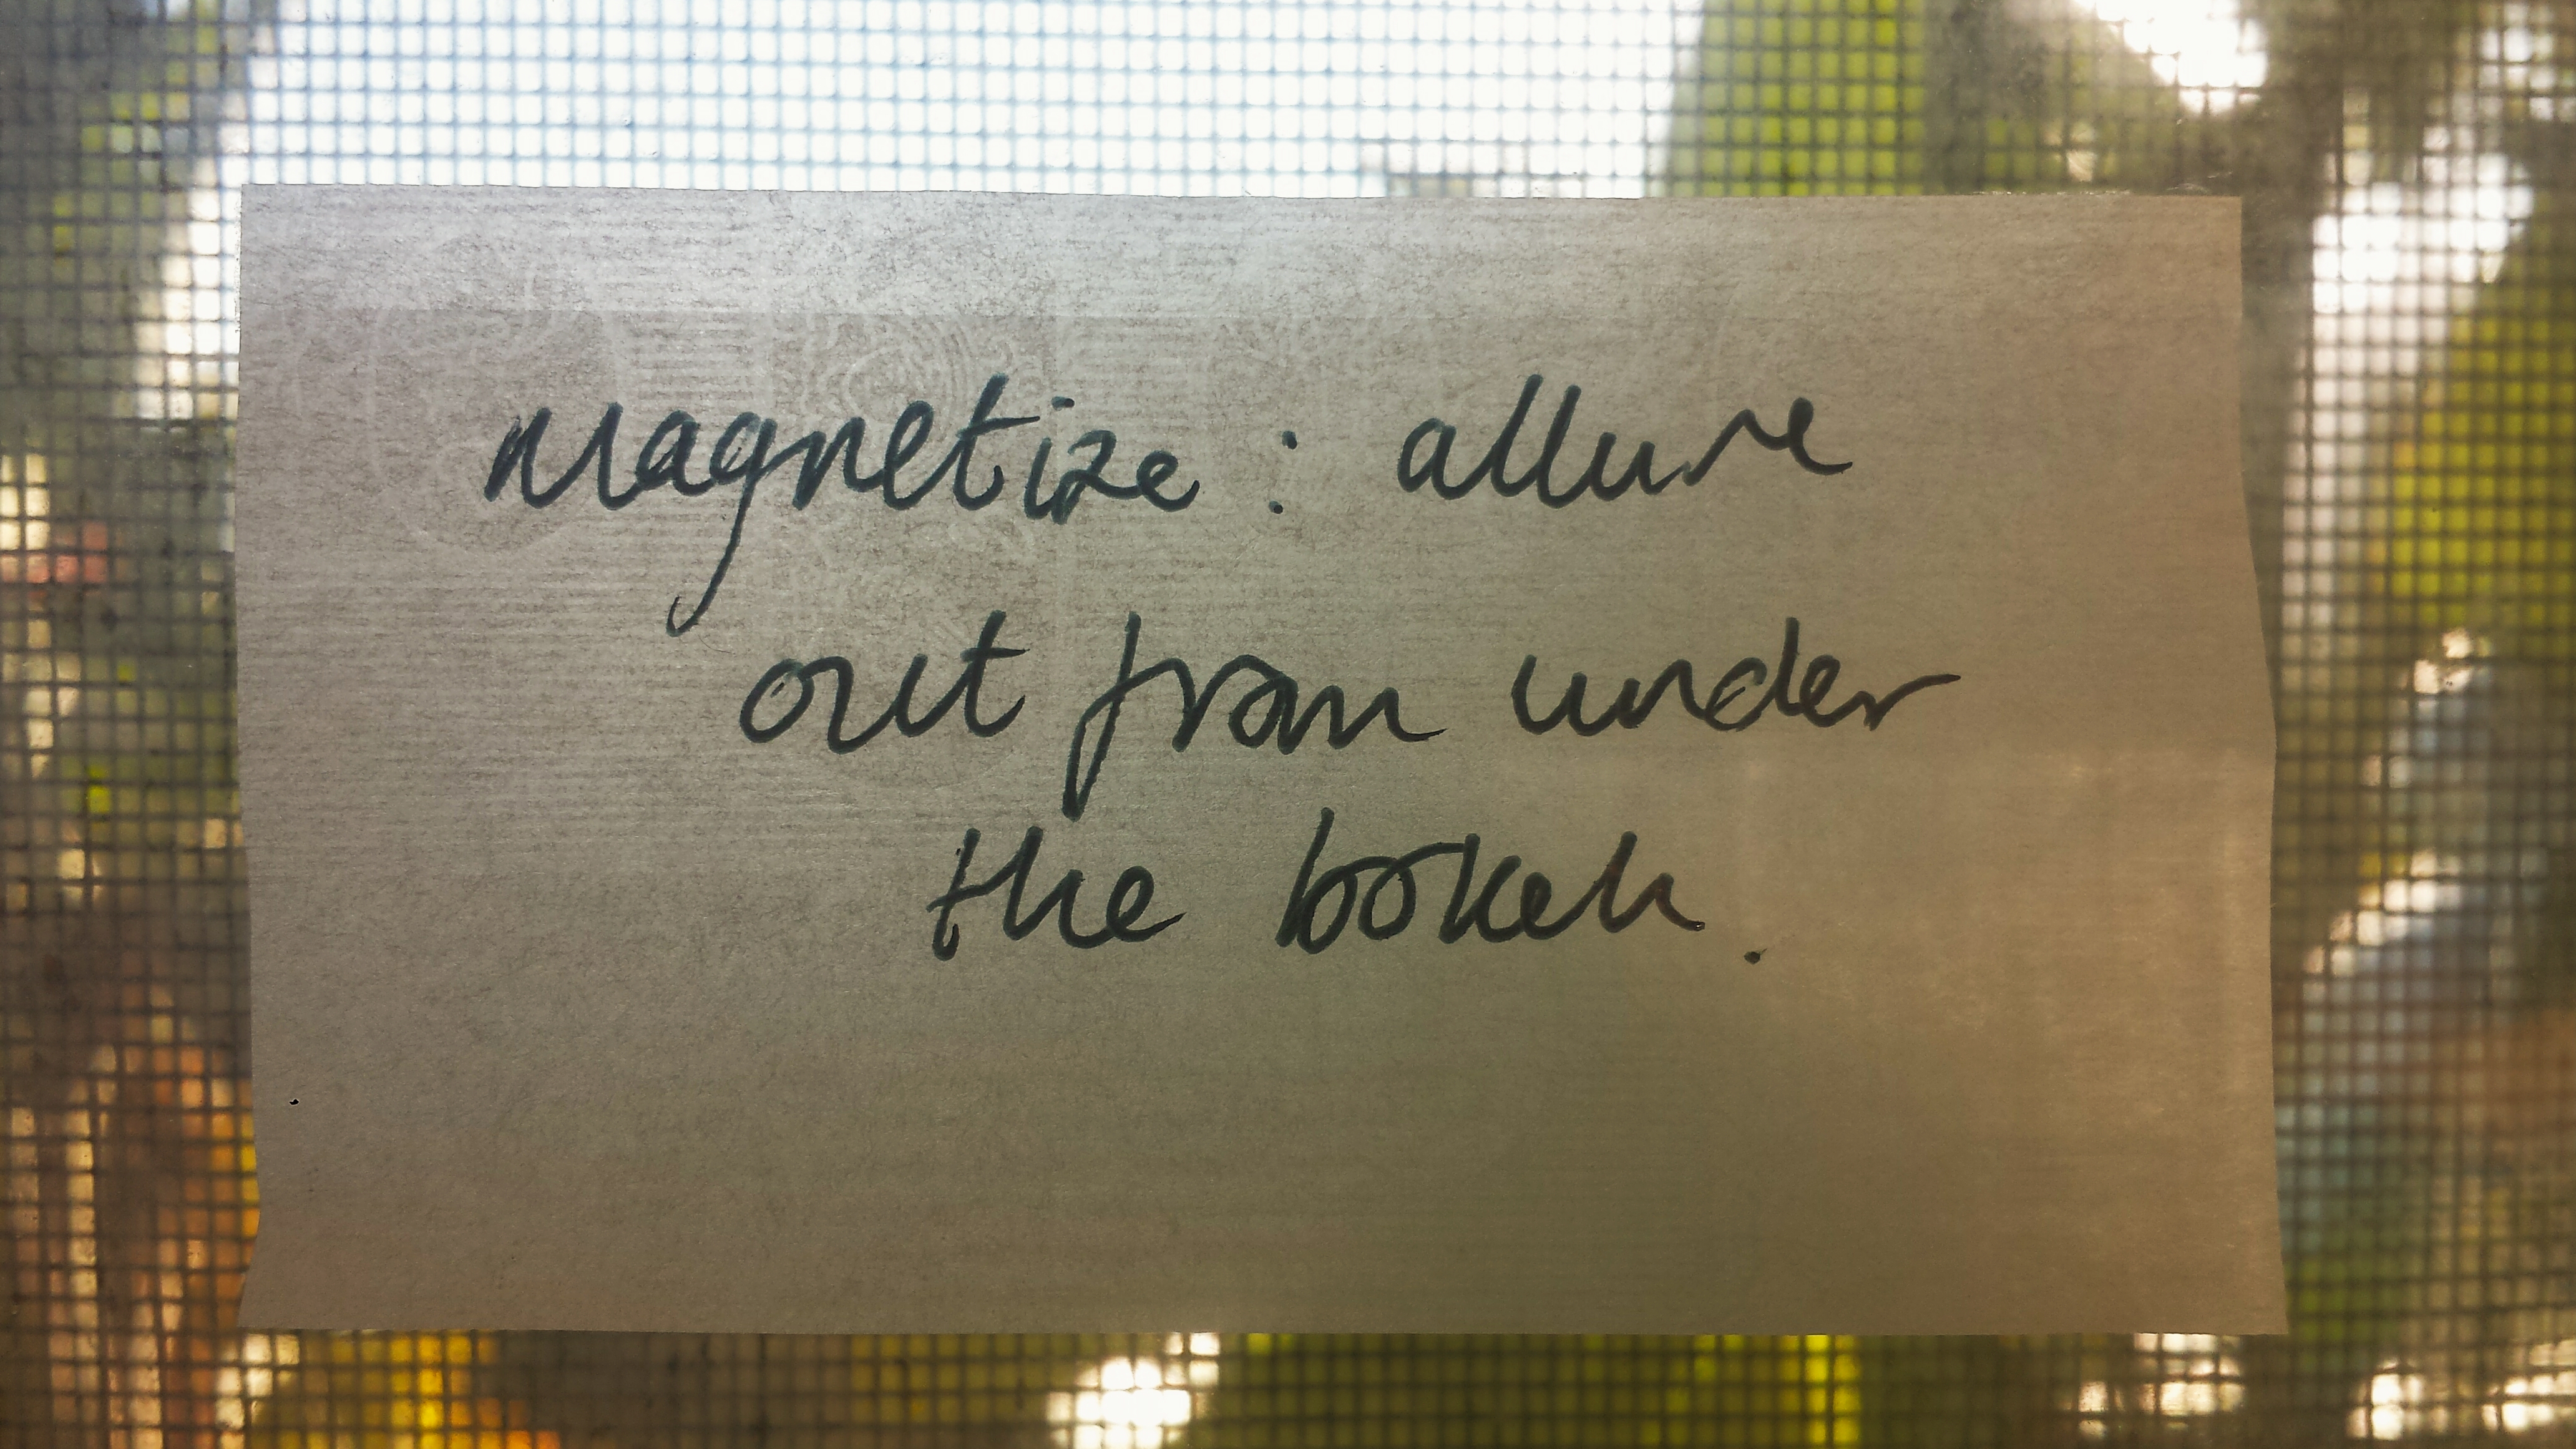 magnetize : allure
out from under
the bokeh.